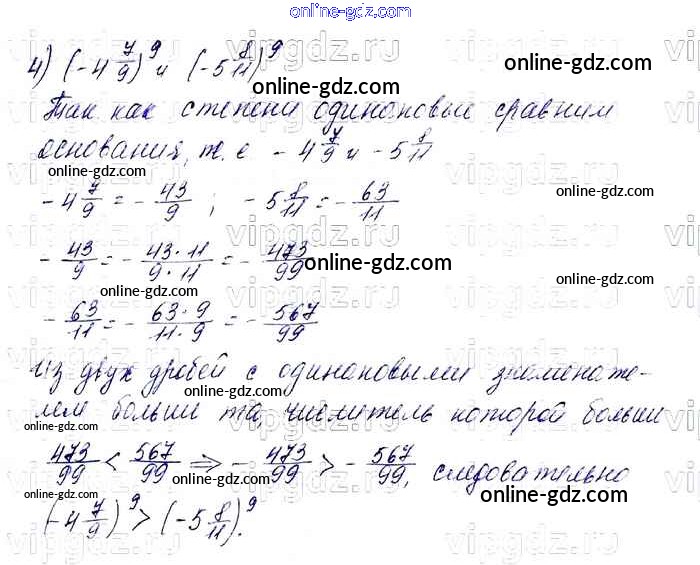 online-gdz.com
4) (-4 7/9)^9 и (-5 8/11)^9
online-gdz.com
online-gdz.com
Так как степени одинаковые сравним
основания, т. е -4 7/9 и -5 8/11
online-gdz.com
online-gdz.com
-4 7/9 = -43/9 ; -5 8/11 = -63/11
online-gdz.com
-43/9 = -43·11/9·11 = -473/99
online-gdz.com
online-gdz.com
online-gdz.com
-63/11 = -63·9/11·9 = -567/99
Из двух дробей с одинаковыми знаменате-
online-gdz.com
online-gdz.com
лем больше та, числитель которой больше
online-gdz.com
online-gdz.com
473/99 < 567/99 ⇒ -473/99 > -567/99, следовательно
online-gdz.com
online-gdz.com
online-gdz.com
(-4 7/9)^9 > (-5 8/11)^9.
vipgdz.ru